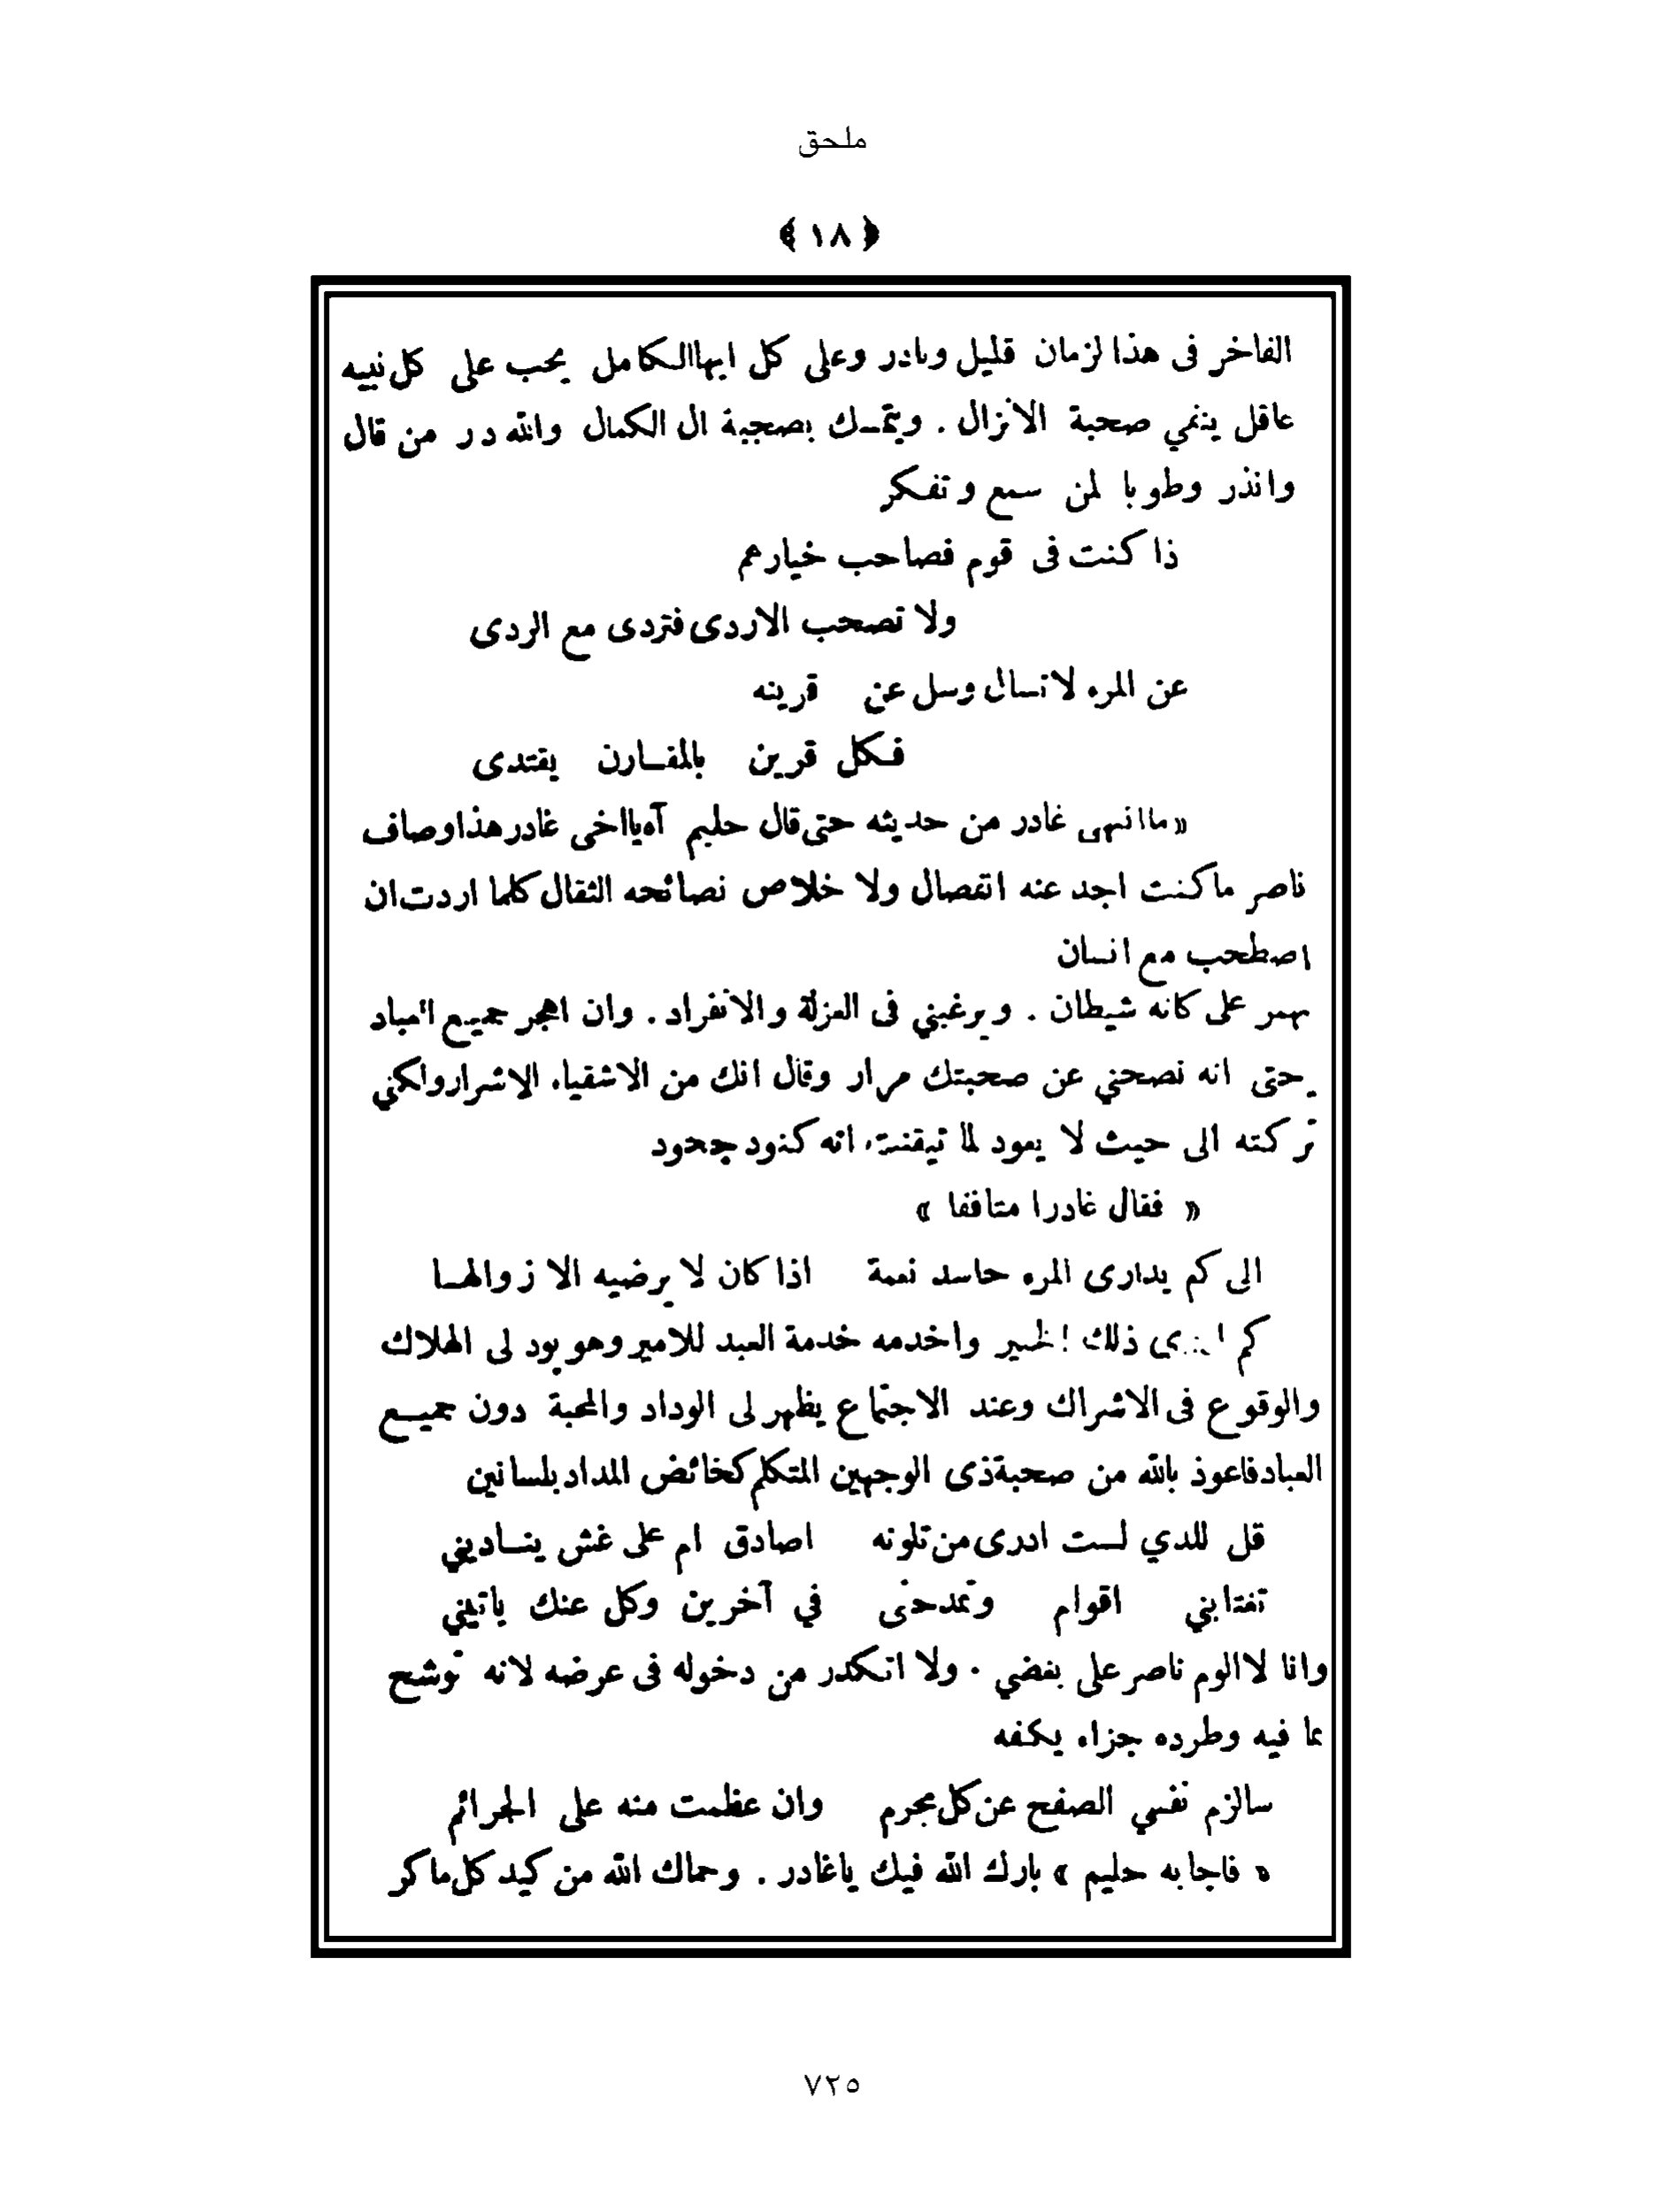 ملحق
﴿ ١٨ ﴾
الفاخر فى هذا لزمان قليل ونادر وعلى كل ايهاالكامل يجب على كل نبيه
عاقل ينمي صحبة الانزال . ويتمسك بصحبة ال الكمال والله در من قال
وانذر وطوبا لمن سمع وتفكر
ذا كنت فى قوم فصاحب خيارهم
ولا تصحب الاردى فتردى مع الردى
عن المرء لاتسال وسل عن قرينه
فكل قرين بالمقارن يقتدى
«ماانهى غادر من حديثه حتى قال حليم آه يااخى غادر هذا وصاف
ناصر ماكنت اجد عنه انفصال ولا خلاص نصائحه الثقال كلما اردت ان
اصطحب مع انسان
يهمر على كانه شيطان . ويرغبني فى العزلة والانفراد . وان اهجر جميع العباد
حتى انه نصحني عن صحبتك مرار وقال انك من الاشقياء الاشرار ولكني
تركته الى حيث لا يعود لما تيقنت انه كنود جحود
« فقال غادرا متاففا »
الى كم يدارى المرء حاسد نعمة اذا كان لا يرضيه الا زوالها
كم ذلك الخير واخدمه خدمة العبد للامير وهو يود لى الهلاك
والوقوع فى الاشراك وعند الاجتماع يظهر لى الوداد والمحبة دون جميع
العباد فاعوذ بالله من صحبة ذى الوجهين المتكلم كخائض المداد بلسانين
قل للدي لست ادرى من تلونه اصادق ام على غش ينــاديني
تغتابني اقوام وتمدحنى في آخرين وكل عنك ياتيني
وانا لاالوم ناصر على بغضي . ولا اتكدر من دخوله فى عرضه لانه توشح
بما فيه وطرده جزاء يكفه
سالزم نفسي الصفح عن كل مجرم وان عظمت منه على الجرائم
« فاجابه حليم » بارك الله فيك ياغادر . وحماك الله من كيد كل ماكر
٧٢٥